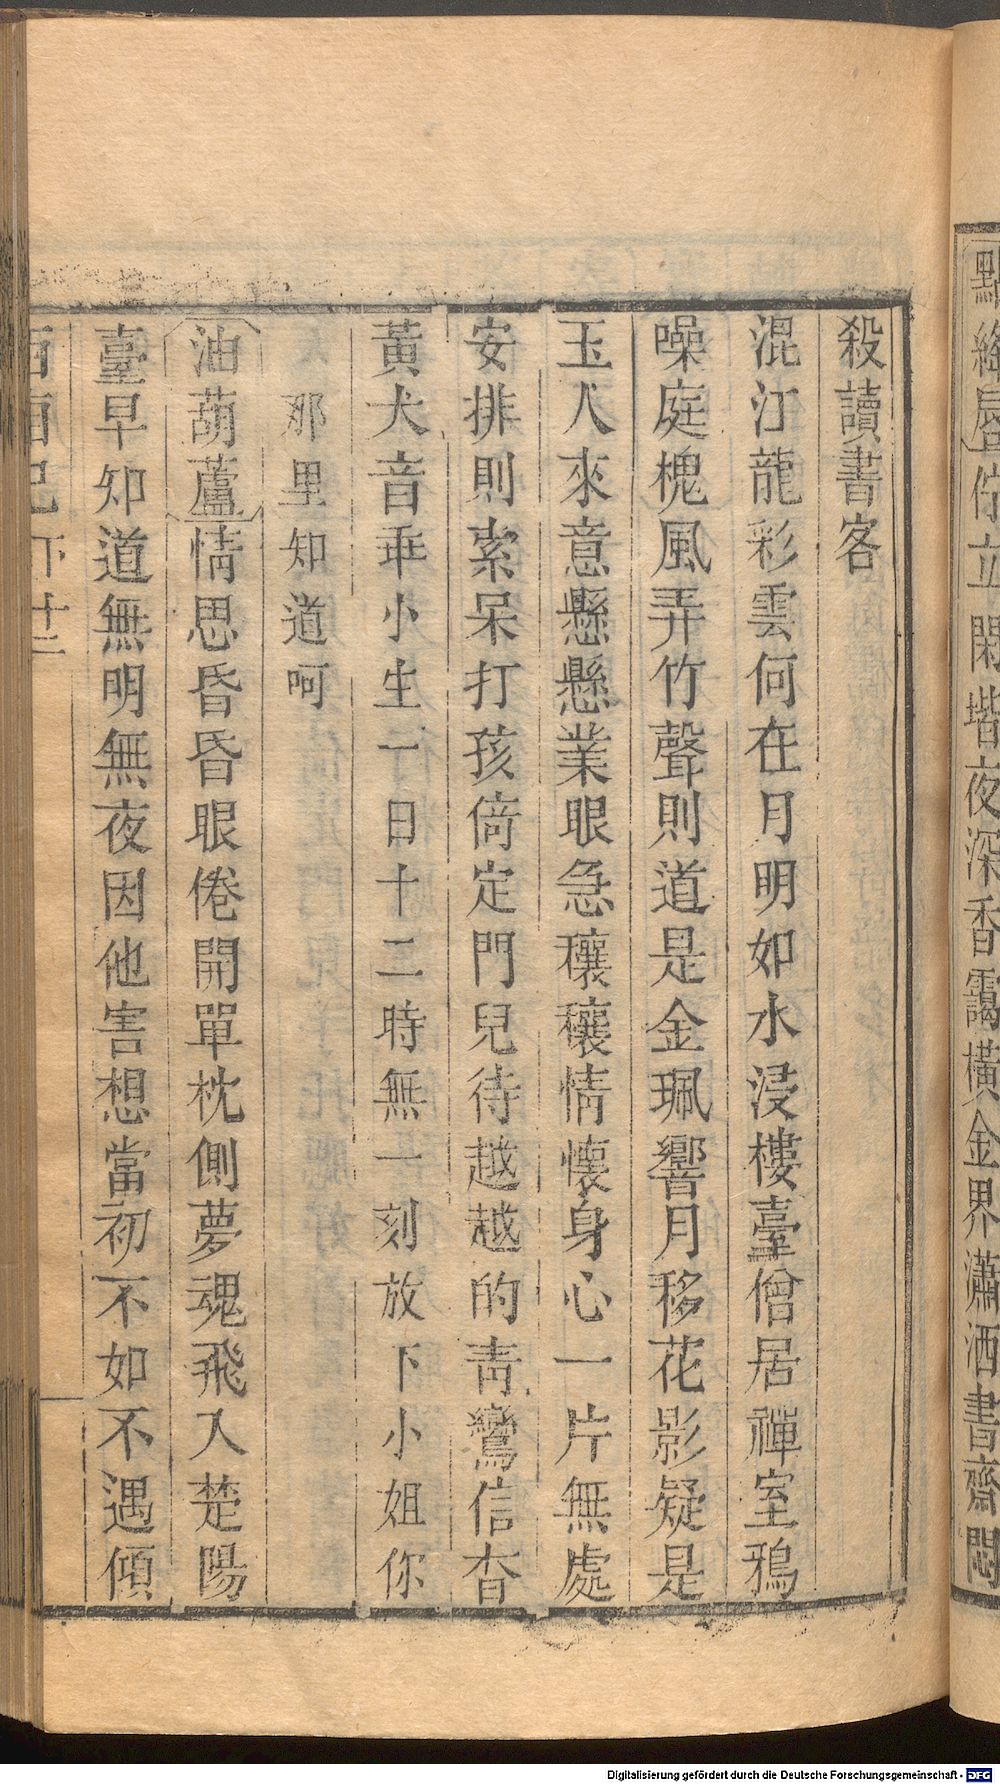 點絳唇佇立閑堦夜深香靄橫金界瀟洒書齋悶
殺讀書客
混江龍彩雲何在月明如水浸樓臺僧居禪室鴉
噪庭槐風弄竹聲則道是金珮響月移花影疑是
玉人來意懸懸業眼急穰穰情懷身心一片無處
安排則索呆打孩倚定門兒待越越的靑鸞信杳
黃犬音乖小生一日十二時無一刻放下小姐你
那里知道呵
油葫蘆情思昏昏眼倦開單枕側夢魂飛入楚陽
臺早知道無明無夜因他害想當初不如不遇傾
西廂記 下 十二
Digitalisierung gefördert durch die Deutsche Forschungsgemeinschaft - DFG